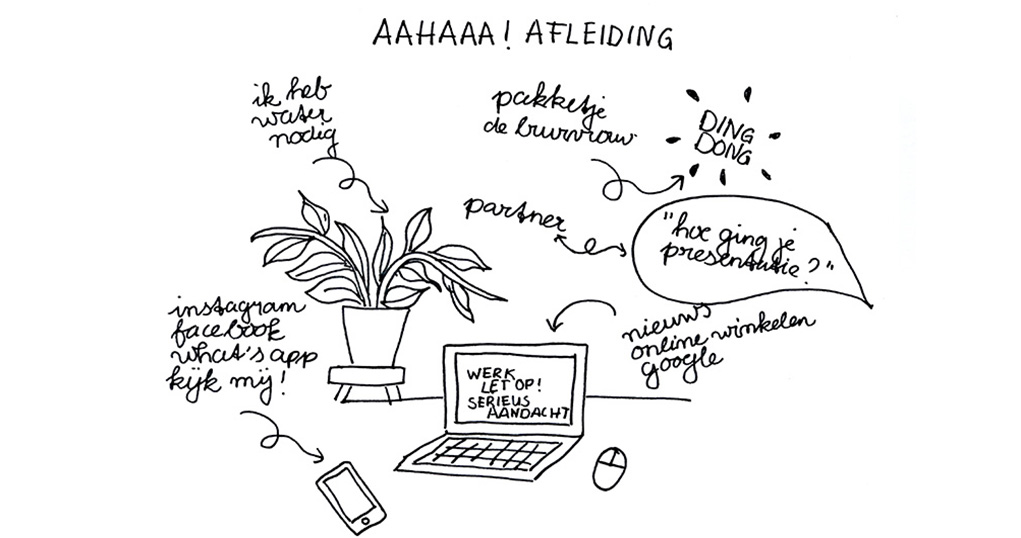 AAHAAA! AFLEIDING
ik heb
water
nodig
pakketje
de buurvrouw
DING
DONG
partner
"hoe ging je
presentatie?"
instagram
facebook
what's app
kijk mij!
nieuws
online winkelen
google
WERK
LET OP!
SERIEUS
AANDACHT